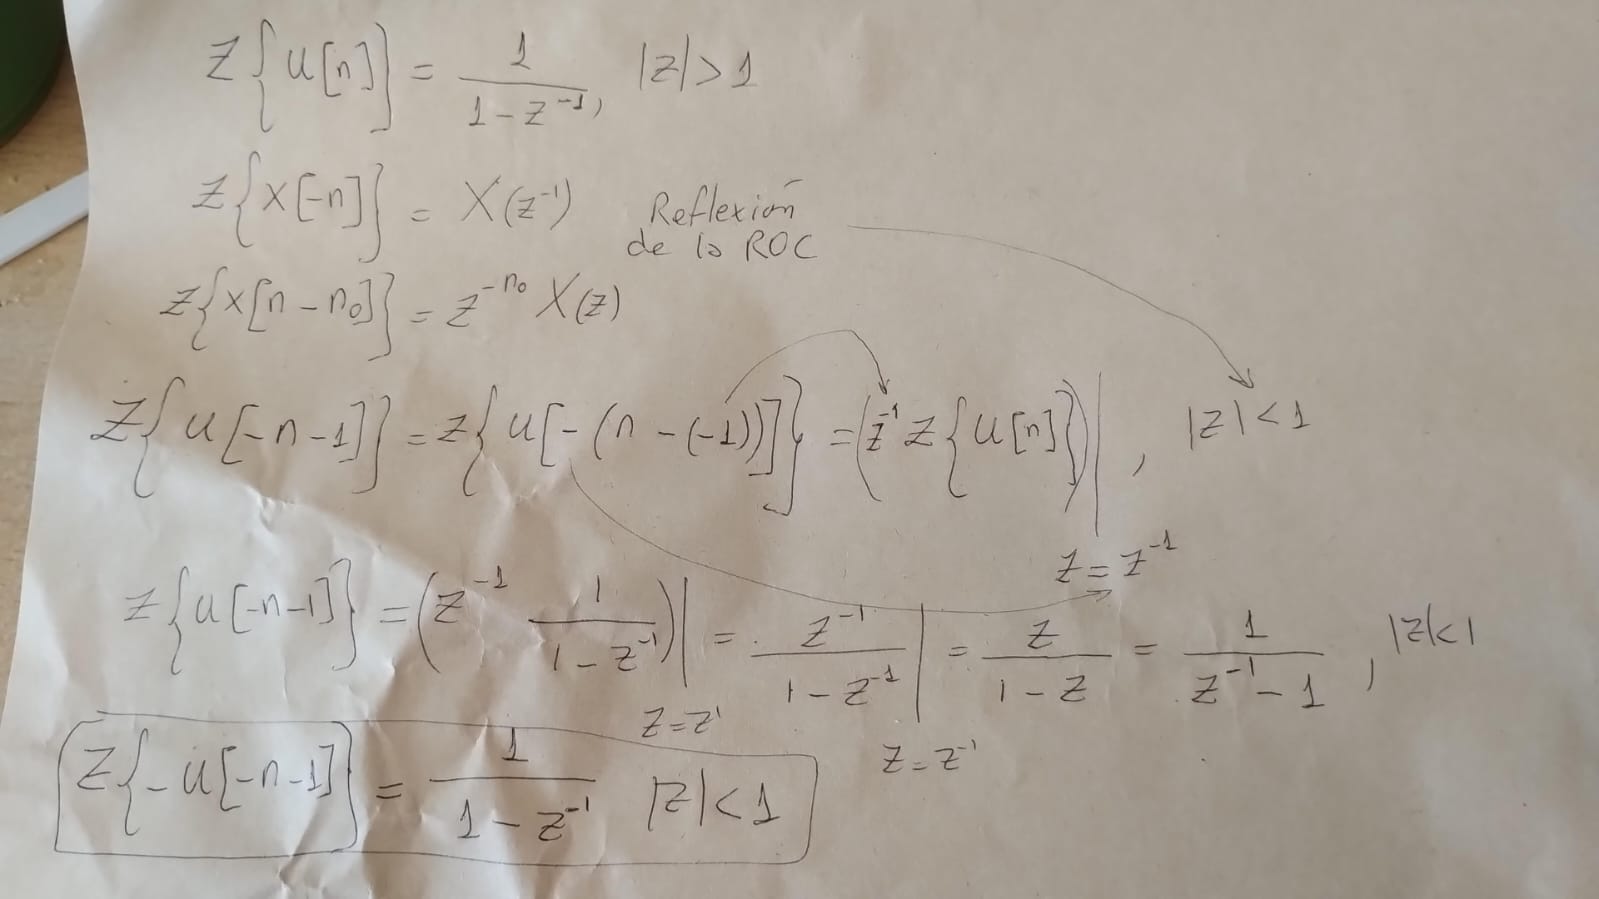 Z{u[n]} = 1/(1-z⁻¹), |z|>1
z{x[-n]} = X(z⁻¹) Reflexión
de la ROC
z{x[n-n₀]} = z^(-n₀) X(z)
Z{u[-n-1]} = z{u[-(n-(-1))]} = (z⁻¹ Z{u[n]})| z=z⁻¹, |z|<1
z{u[-n-1]} = (z⁻¹ 1/(1-z⁻¹))| z=z¹ = z⁻¹/(1-z⁻¹)| z=z⁻¹ = z/(1-z) = 1/(z⁻¹-1), |z|<1
Z{-u[-n-1]} = 1/(1-z⁻¹) |z|<1